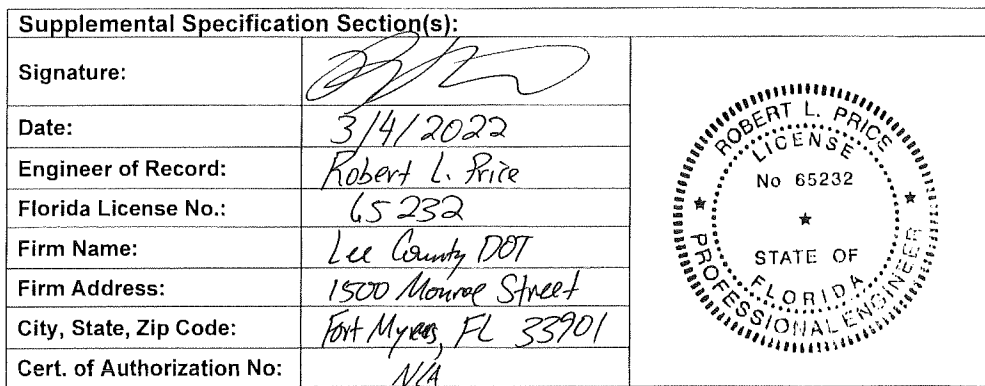 Supplemental Specification Section(s):
Signature:
Date: 3/4/2022
Engineer of Record: Robert L. Price
Florida License No.: 65232
Firm Name: Lee County DOT
Firm Address: 1500 Monroe Street
City, State, Zip Code: Fort Myers, FL 33901
Cert. of Authorization No: N/A
ROBERT L. PRICE
LICENSE
No 65232
STATE OF
FLORIDA
PROFESSIONAL ENGINEER